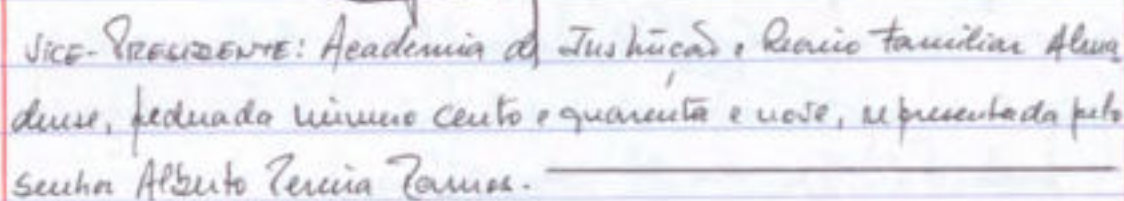 VICE-PRESIDENTE: Academia de Instrução e Recreio Familiar Alma
dense, federada número cento e quarenta e nove, representada pelo
senhor Alberto Pereira Ramos.